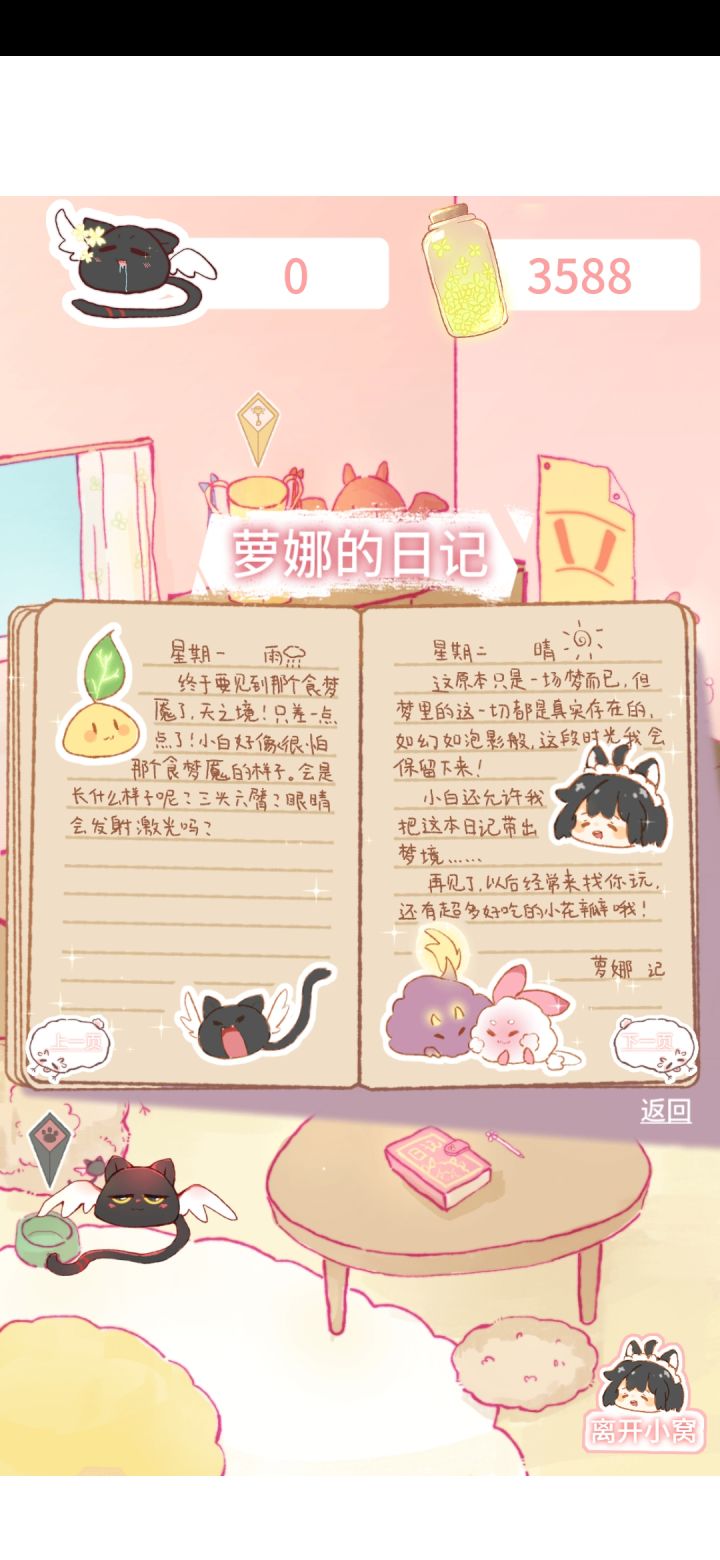 0
3588
萝娜的日记
星期一 雨
终于要见到那个食梦
魇了,天之境!只差一点
点了!小白好像很怕
那个食梦魇的样子。会是
长什么样子呢?三头六臂?眼睛
会发射激光吗?
上一页
星期二 晴
这原本只是一场梦而已,但
梦里的这一切都是真实存在的,
如幻如泡影般,这段时光我会
保留下来!
小白还允许我
把这本日记带出
梦境……
再见了,以后经常来找你玩,
还有超多好吃的小花瓣哦!
萝娜 记
下一页
返回
离开小窝